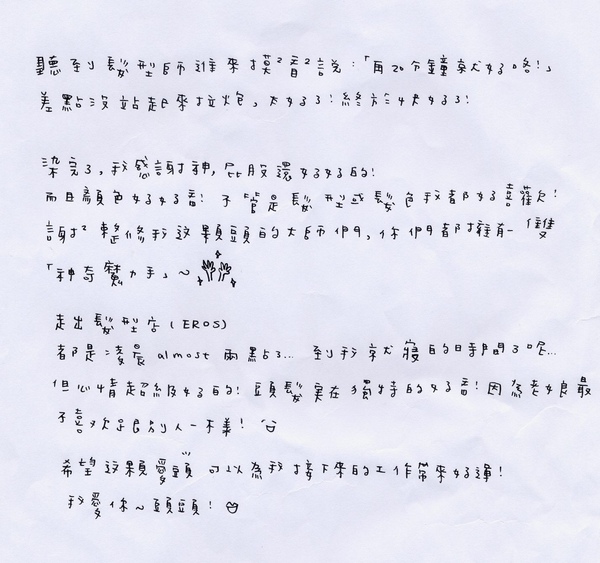 聽到髮型師進來摸²音²說:「再20分鐘就好咯!」
差點沒站起來拉炮,太好了!終於快好了!
染完了,我感謝神,屁股還好好的!
而且顏色好好看!不管是髮型或髮色我都好喜歡!
謝謝²整修我這顆頭的大師們,你們都擁有一雙
「神奇魔力手」~
走出髮型店(EROS)
都是凌晨almost兩點了... 到我就寢的時間了呢...
但心情超級好的!頭髮實在獨特的好看!因為老娘最
不喜歡跟別人一樣!
希望這顆愛頭可以為我接下來的工作帶來好運!
我愛你~頭頭!